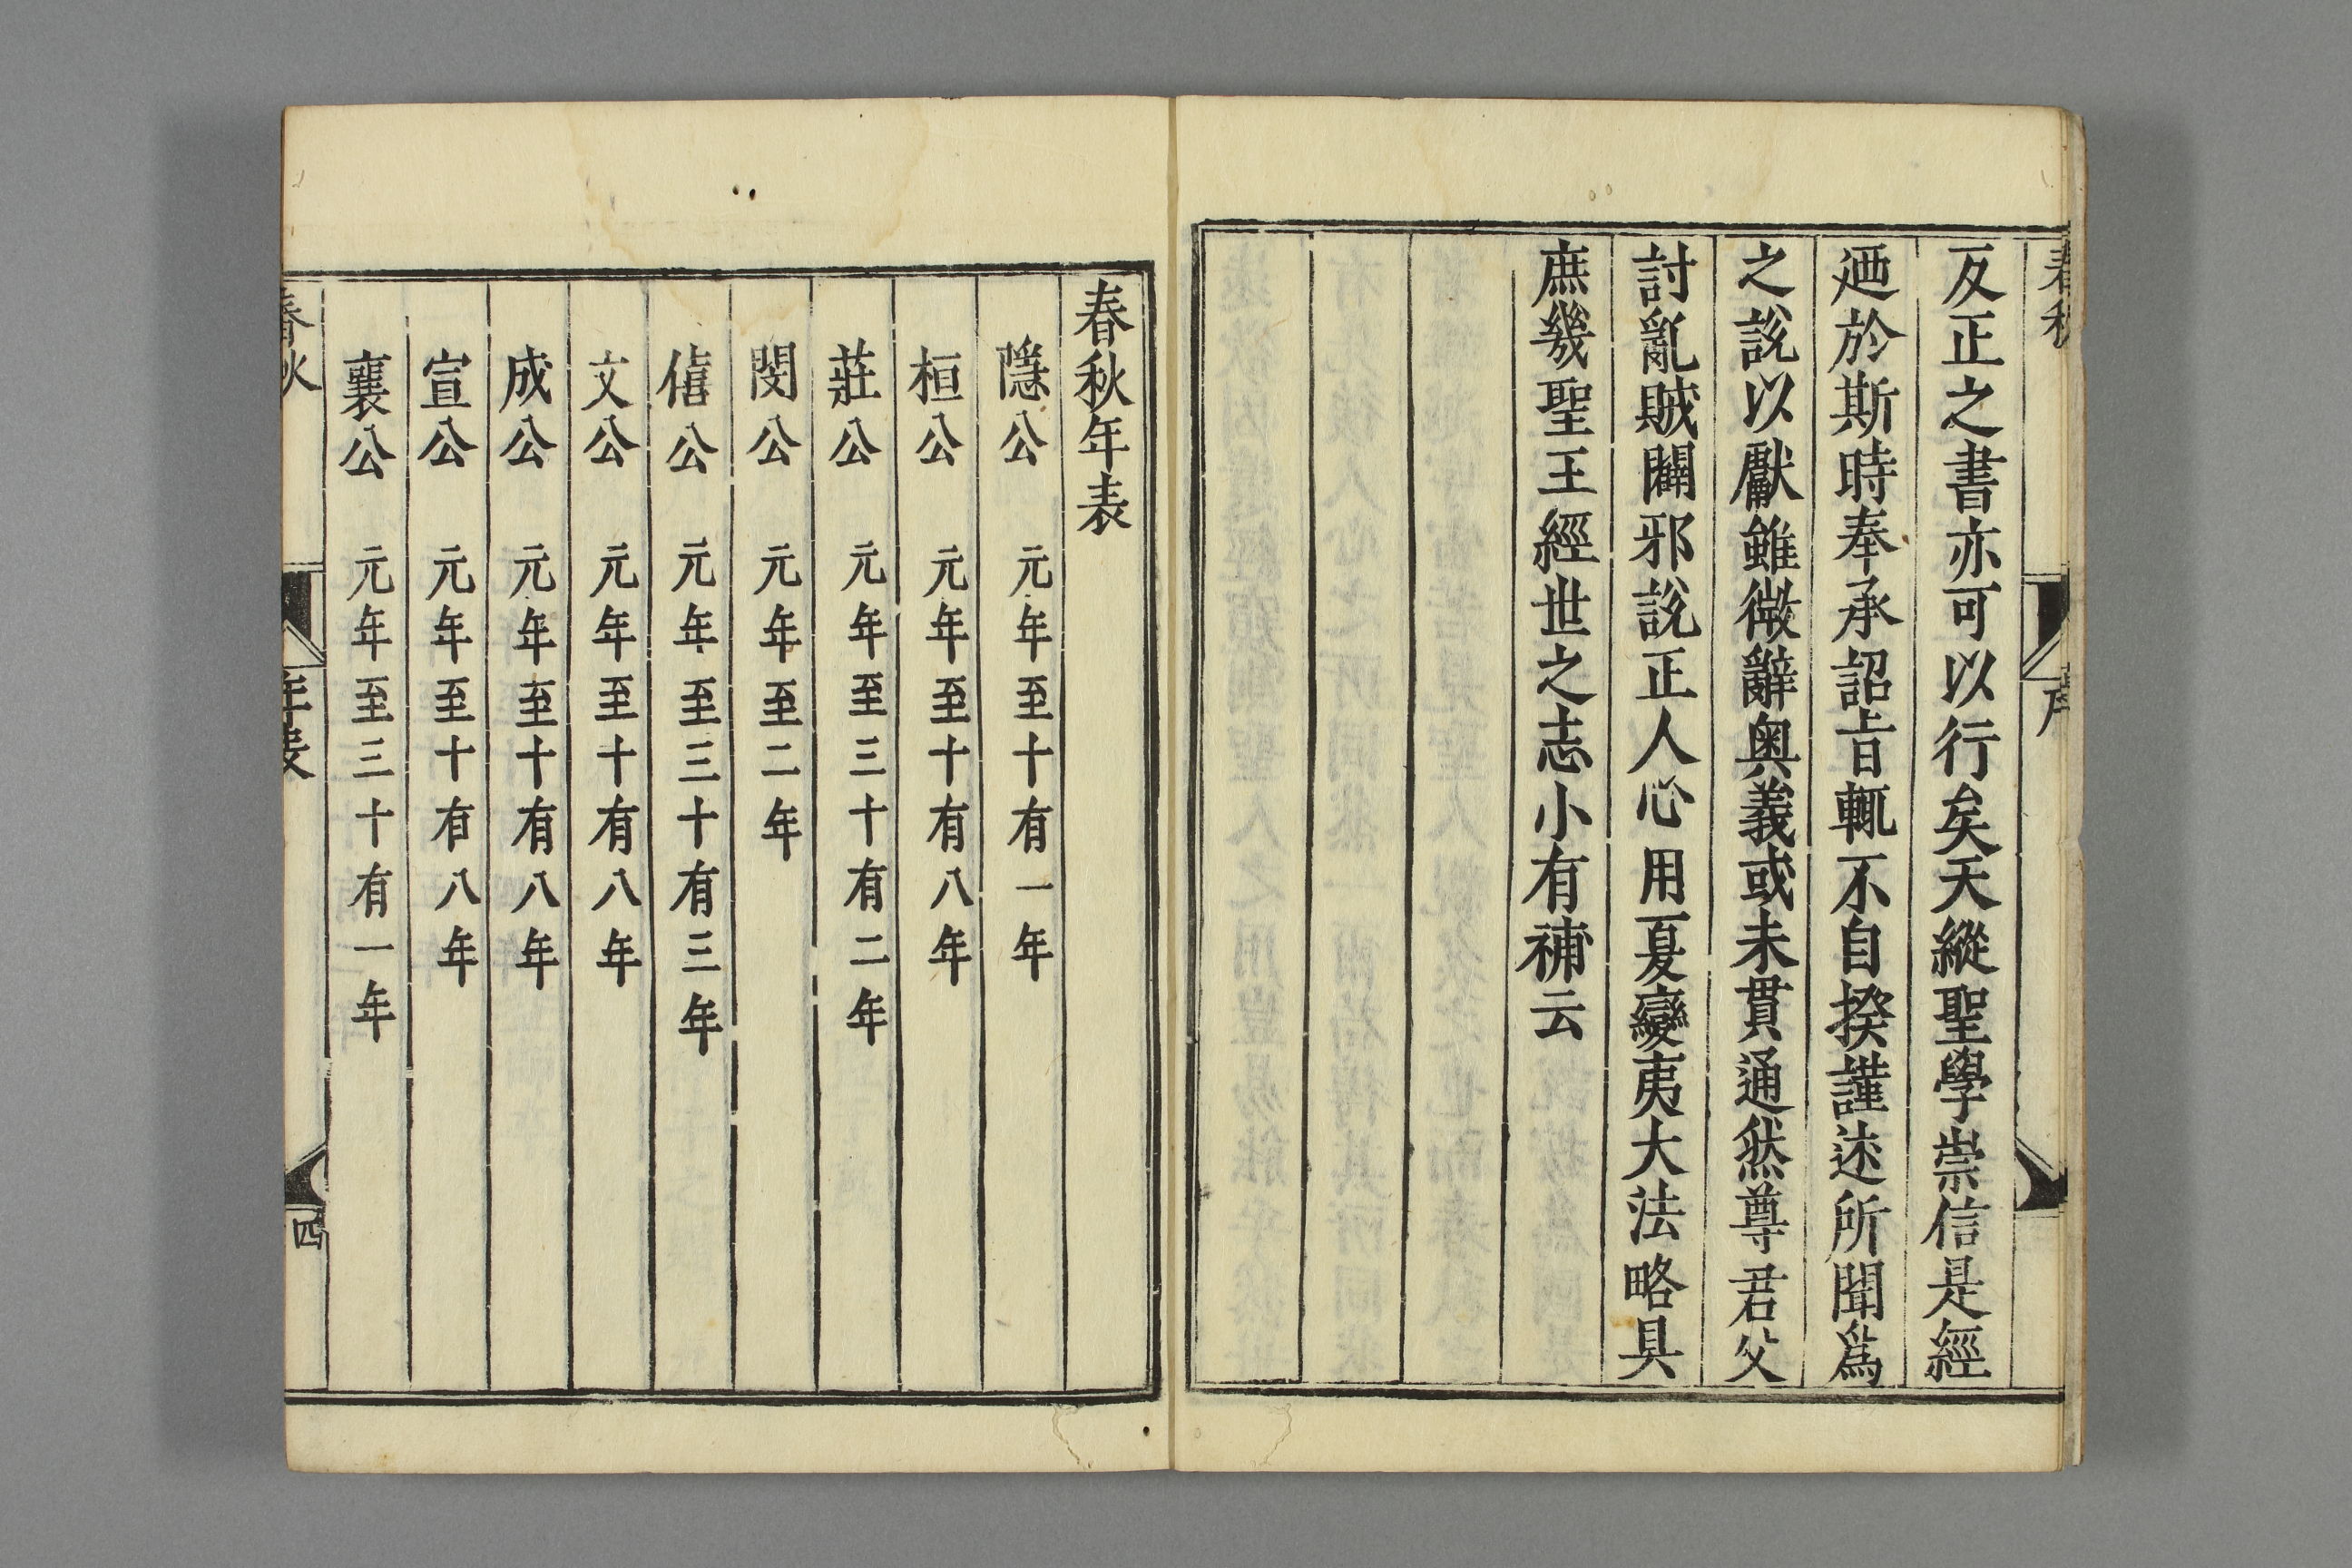 春秋
序
反正之書亦可以行矣天縱聖學崇信是經
廼於斯時奉承詔旨輒不自揆謹述所聞爲
之說以獻雖微辭奧義或未貫通然尊君父
討亂賊闢邪說正人心用夏變夷大法略具
庶幾聖王經世之志小有補云
春秋年表
隱公 元年至十有一年
桓公 元年至十有八年
莊公 元年至三十有二年
閔公 元年至二年
僖公 元年至三十有三年
文公 元年至十有八年
成公 元年至十有八年
宣公 元年至十有八年
襄公 元年至三十有一年
春秋
年表
四